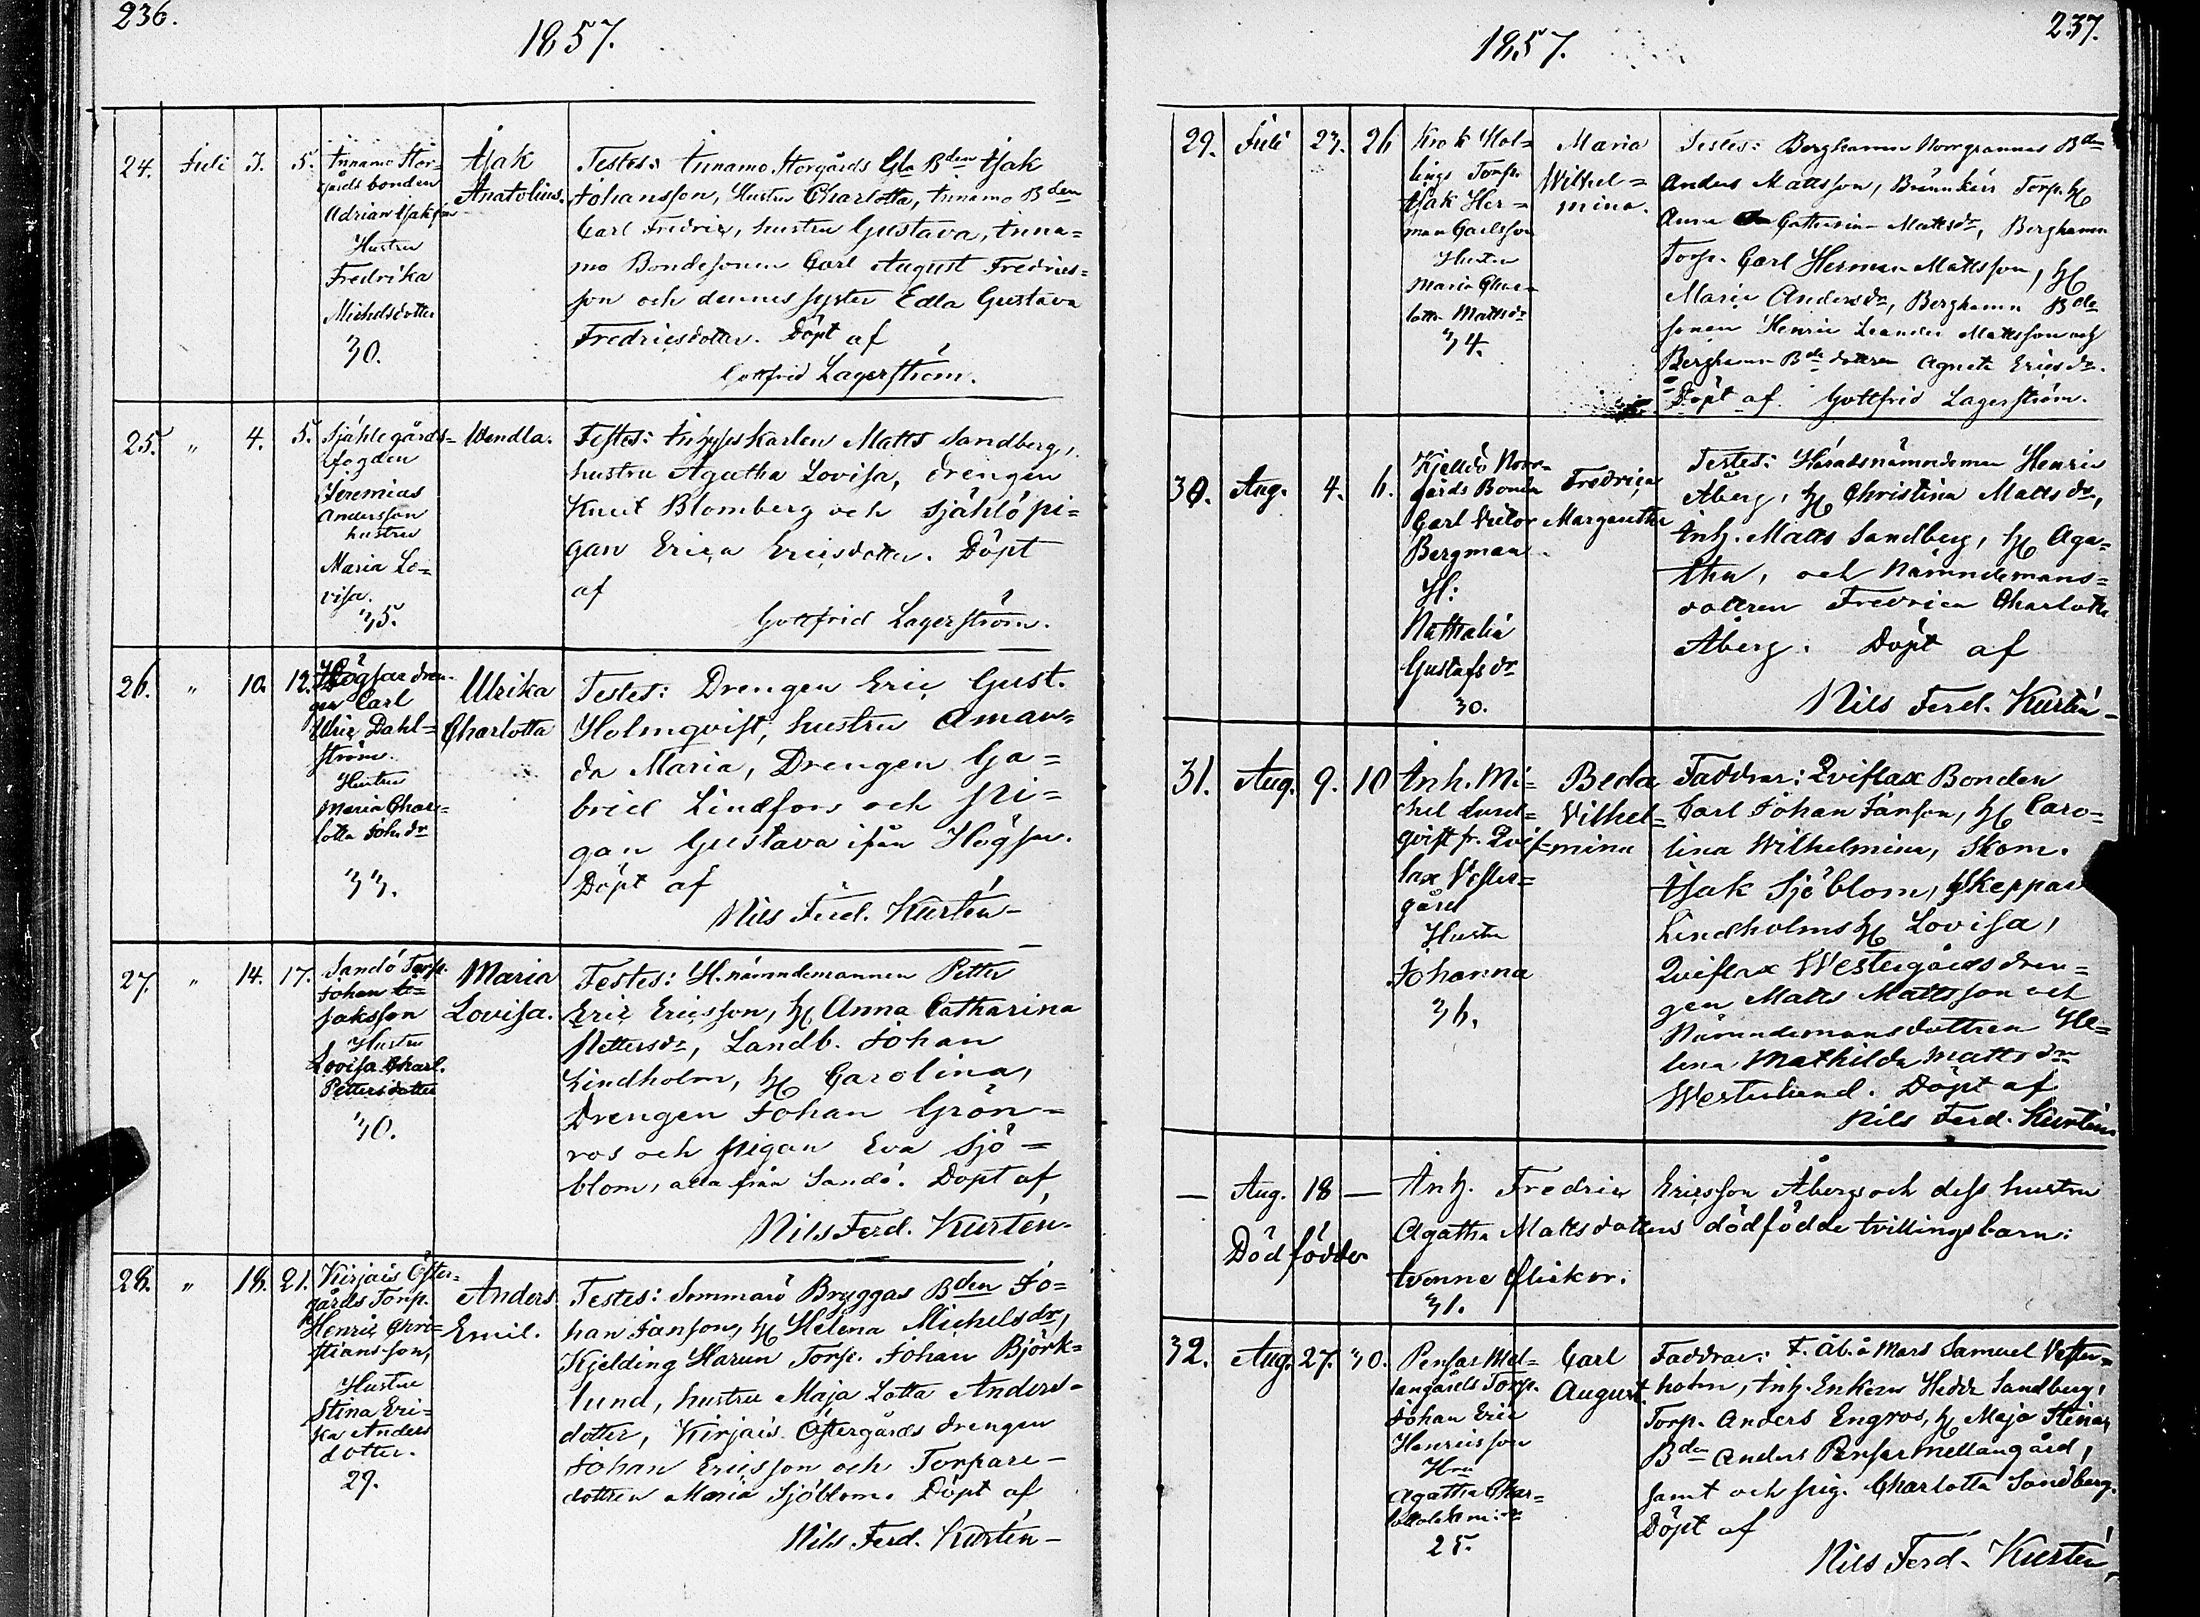 236.
1857.
24. Juli 3. 5.
Innamo Stor-
gårds bonden
Adrian Isaksson
Hustru
Fredrika
Michelsdotter
30.
Isak
Anatolius.
Testes: Innamo Storgårds Gla Bden Isak
Johansson, Hustru Charlotta, Innamo Bden
Carl Fredric, hustru Gustava, Inna=
mo Bondesonen Carl August Fredrics=
son och dennes syster Edla Gustava
Fredricsdotter. Döpt af
Gottfrid Lagerström.
25. " 4. 5.
Sjählö gårds=
fogden
Jeremias
Andersson
hustru
Maria Lo=
visa.
35.
Wendla.
Testes: Inhyseskarlen Matts Sandberg,
hustru Agatha Lovisa, drengen
Knut Blomberg och Sjählö pi=
gan Erica Ericsdotter. Döpt
af
Gottfrid Lagerström.
26. " 10. 12.
Högsar dren-
gen Carl
Ulric Dahl=
ström.
Hustru
Maria Char=
lotta Johsdr
33.
Ulrika
Charlotta
Testes: Drengen Eric Gust.
Holmqvist, hustru Aman=
da Maria, Drengen Ga=
briel Lindfors och pi=
gan Gustava ifrån Högsar.
Döpt af
Nils Ferd. Kurtén-
27. " 14. 17.
Sandö Torp.
Johan I=
saksson
Hustru
Lovisa Charl.
Pettersdotter
30.
Maria
Lovisa.
Testes: H.nämndemannen Petter
Eric Ericsson, H. Anna Catharina
Pettersdr, Landb. Johan
Lindholm, H. Carolina,
Drengen Johan Grön=
ros och pigan Eva Sjö=
blom, alla från Sandö. Döpt af
Nils Ferd. Kurtén-
28. " 18. 21.
Kirjais Öster=
gårds Torp.
Henric Chri=
stiansson,
Hustru
Stina Eri=
ka Anders
dotter.
29.
Anders
Emil.
Testes: Sommarö Bryggas Bden Jo=
han Janson, H. Helena Michelsdr,
Kjelding Harun Torp. Johan Björk=
lund, hustru Maja Lotta Anders=
dotter, Kirjais Östergårds drengen
Johan Ericsson och Torpare-
dottren Maria Sjöblom. Döpt af
Nils Ferd. Kurtén-
237.
1857.
29. Juli 23. 26
Krok Hol=
lings Torp.
Isak Her=
man Carlsson
Hustru
Maria Char=
lotta Mattsdr
34.
Maria
Wilhel=
mina.
Testes: Berghamn Norrgrannas Bden
Anders Mattsson, Brännkärr Torp. H.
Anna Catharina Mattsdr, Berghamn
Torp. Carl Herman Mattsson, H.
Maria Andersdr, Berghamn Bde
sonen Henric Leander Mattsson och
Berghamn Bde dottren Agneta Ericsdr.
Döpt af Gottfrid Lagerström.
30. Aug. 4. 6.
Kjelldö Norr=
gårds Bonden
Carl Victor
Bergman
H:
Nathalia
Gustafsdr
30.
Fredrica
Margaretha
Testes: Häradsnämndeman Henric
Åberg, H. Christina Mattsdr,
Inh. Matts Sandberg, H. Aga=
tha, och Nämndemans=
dottren Fredrica Charlotta
Åberg. Döpt af
Nils Ferd. Kurtén-
31. Aug. 9. 10
Inh. Mi=
chel Lund=
qvist fr. Qvif=
lax Vester=
gård
Hustru
Johanna
36.
Beda
Vilhel=
mina
Faddrar: Qviflax Bonden
Carl Johan Janson, H. Caro=
lina Wilhelmina, Skom.
Isak Sjöblom, Skeppar
Lindholms H. Lovisa,
Qviflax Westergårds dren=
gen Matts Mattsson och
Nämndemansdottren He=
lena Mathilda Mattsdr
Westerlund. Döpt af
Nils Ferd. Kurtén
— Aug. 18 — Inh. Fredric Ericsson Åberg och dess hustru
Dödfödde Agatha Mattsdotters dödfödde tvillingsbarn:
tvenne flickor.
31.
32. Aug. 27. 30.
Pensar Mel=
langårds Torp.
Johan Eric
Henricsson
Hru
Agatha Char=
lotta
25.
Carl
August
Faddrar: F. Åb. å Mars Samuel Vester=
holm, Inh. Enkan Hedda Sandberg,
Torp. Anders Engros, H. Maja Stina,
Bden Anders Pensar Mellangård,
samt och pig. Charlotta Sandberg.
Döpt af
Nils Ferd. Kurtén,